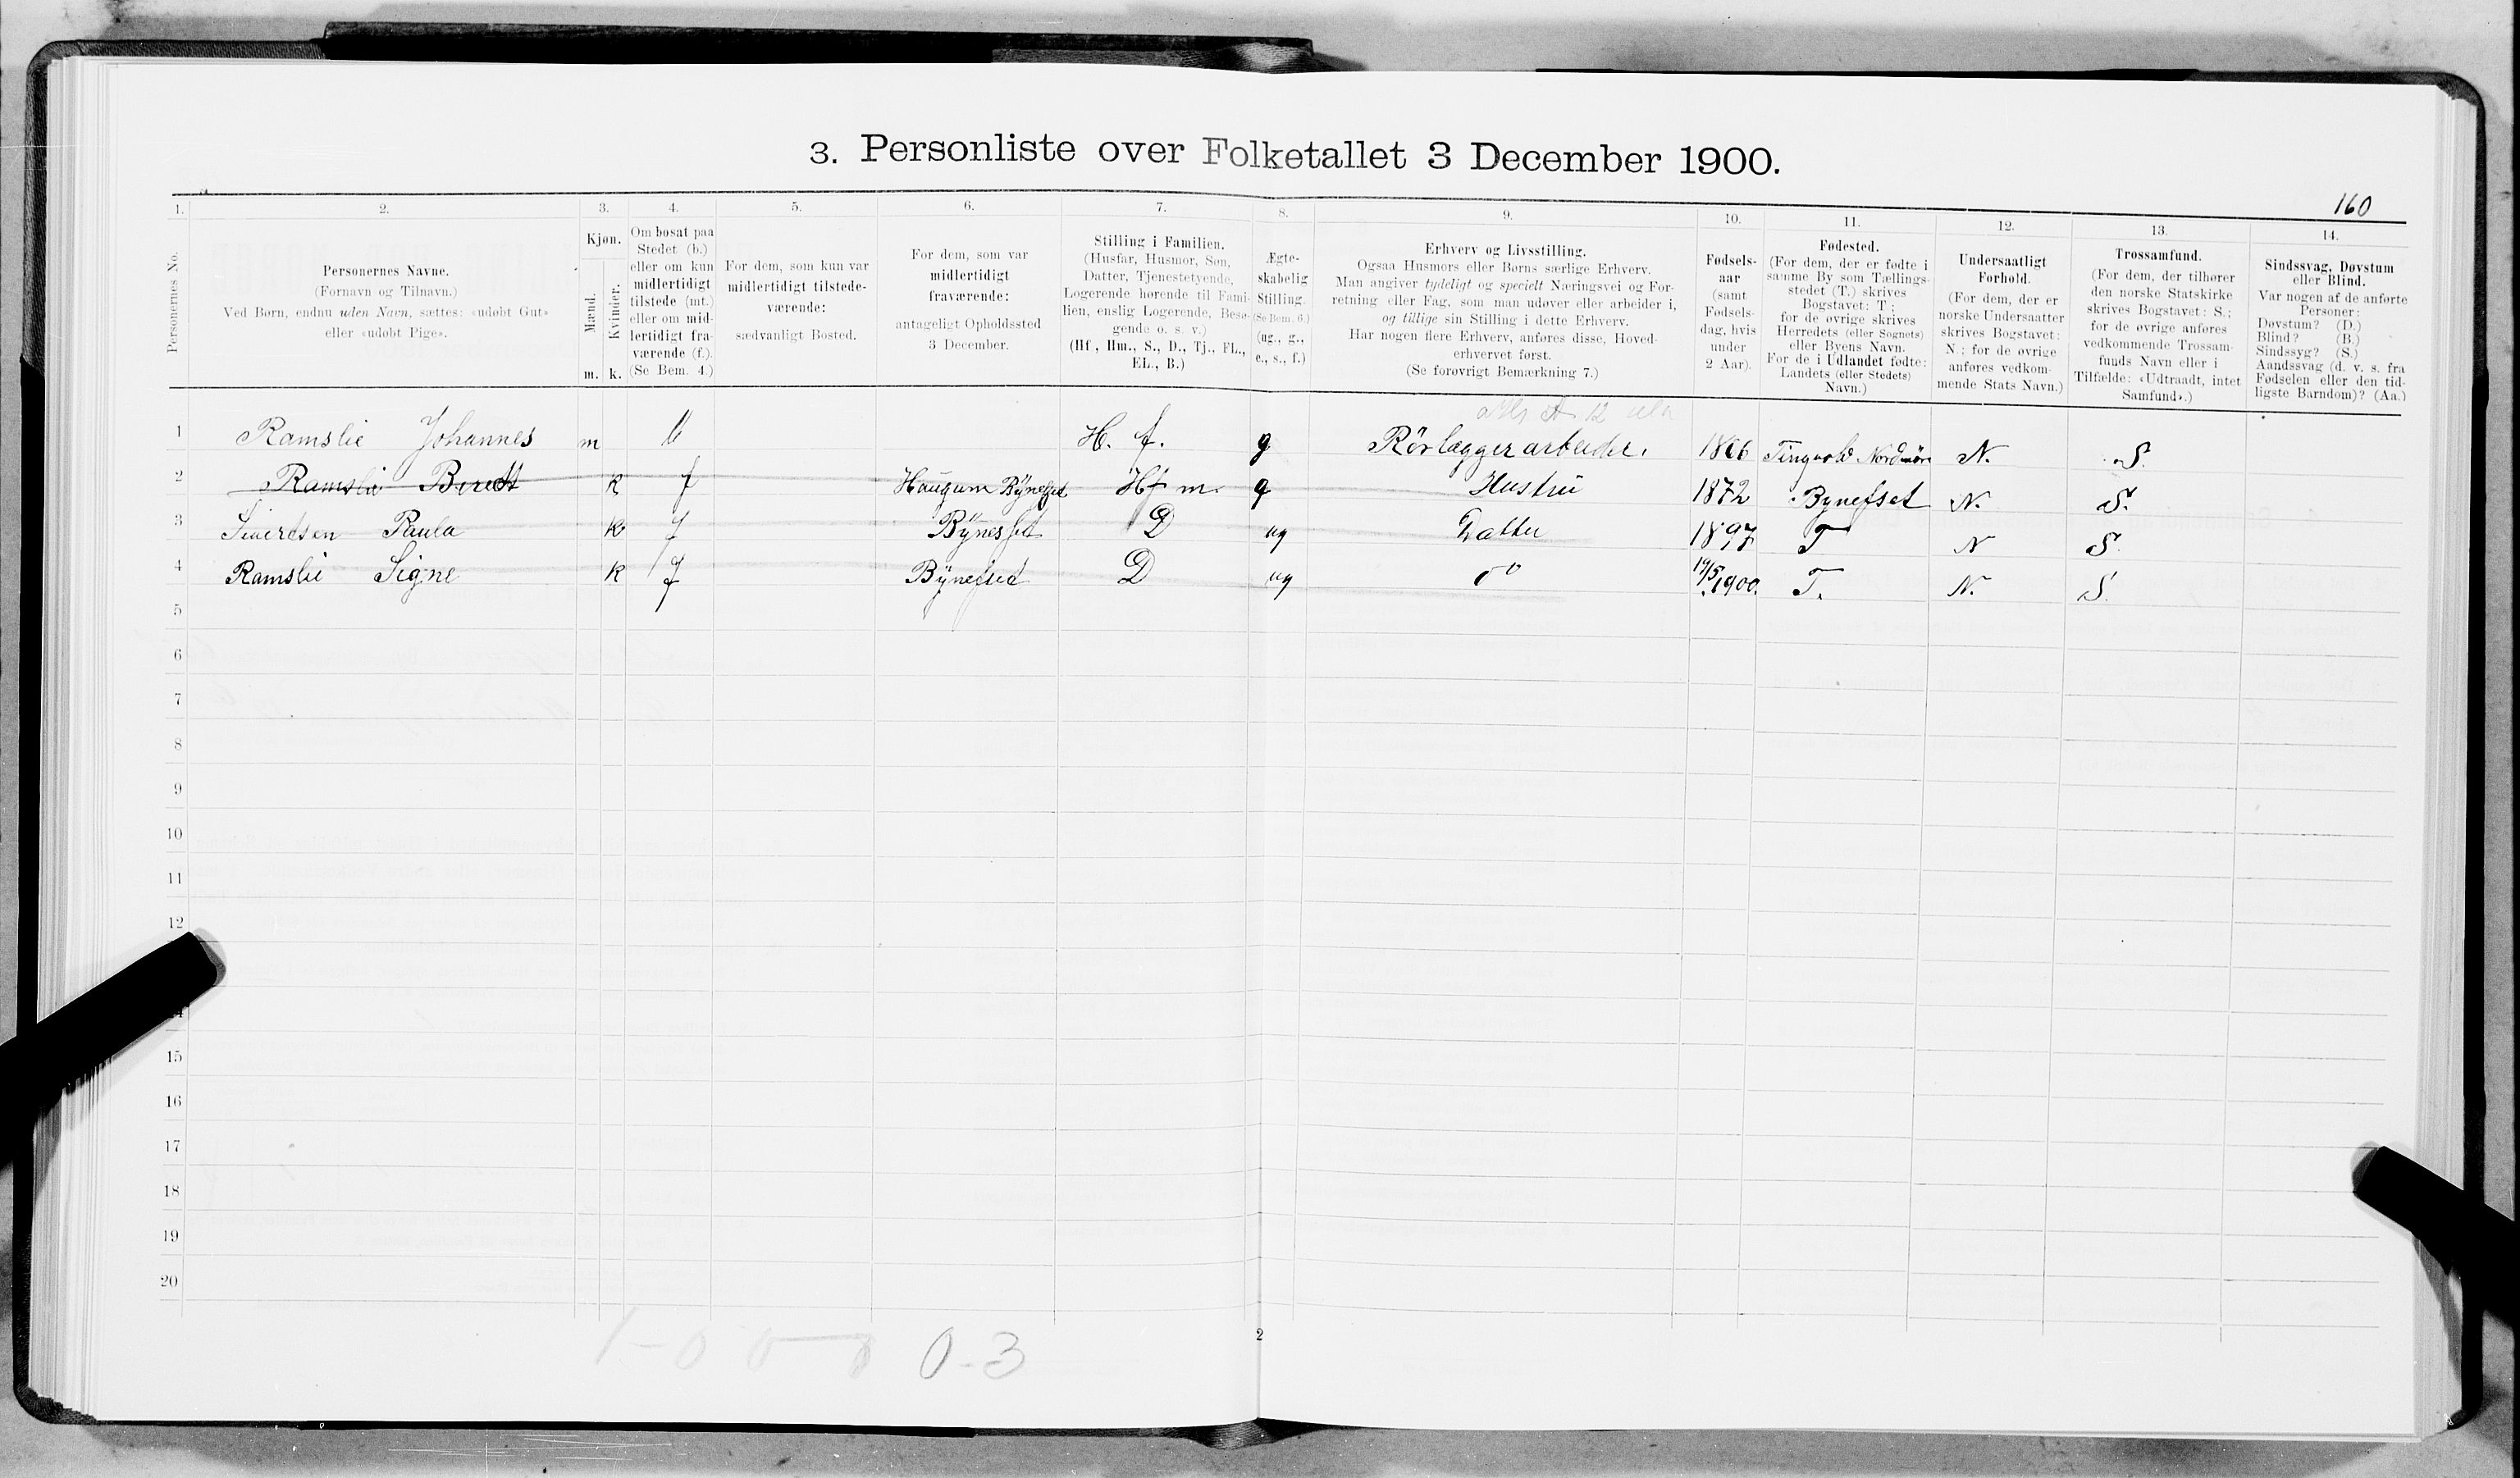 3. Personliste over Folketallet 3 December 1900.
160
1. 2. 3. 4. 5. 6. 7. 8. 9. 10. 11. 12. 13. 14.
Personernes No.
Personernes Navne.
(Fornavn og Tilnavn.)
Ved Børn, endnu uden Navn, sættes: «udøbt Gut»
eller «udøbt Pige».
Kjøn.
Mænd.
Kvinder.
m. k.
Om bosat paa
Stedet (b.)
eller om kun
midlertidigt
tilstede (mt.)
eller om mid-
lertidigt fra-
værende (f.).
(Se Bem. 4.)
For dem, som kun var
midlertidigt tilstede-
værende:
sædvanligt Bosted.
For dem, som var
midlertidigt
fraværende:
antageligt Opholdssted
3 December.
Stilling i Familien.
(Husfar, Husmor, Søn,
Datter, Tjenestetyende,
Logerende hørende til Fami-
lien, enslig Logerende, Besø-
gende o. s. v.)
(Hf., Hm., S., D., Tj., FL.,
EL., B.)
Ægte-
skabelig
Stilling.
(Se Bem. 6.)
(ug., g.,
e., s., f.)
Erhverv og Livsstilling.
Ogsaa Husmors eller Børns særlige Erhverv.
Man angiver tydeligt og specielt Næringsvei og For-
retning eller Fag, som man udøver eller arbeider i,
og tillige sin Stilling i dette Erhverv.
Har nogen flere Erhverv, anføres disse, Hoved-
erhvervet først.
(Se forøvrigt Bemærkning 7.)
Fødsels-
aar
(samt
Fødsels-
dag, hvis
under
2 Aar).
Fødested.
(For dem, der er fødte i
samme By som Tællings-
stedet (T.) skrives
Bogstavet: T;
for de øvrige skrives
Herredets (eller Sognets)
eller Byens Navn.
For de i Udlandet fødte:
Landets (eller Stedets)
Navn.)
Undersaatligt
Forhold.
(For dem, der er
norske Undersaatter
skrives Bogstavet:
N.; for de øvrige
anføres vedkom-
mende Stats Navn.)
Trossamfund.
(For dem, der tilhører
den norske Statskirke
skrives Bogstavet: S.;
for de øvrige anføres
vedkommende Trossam-
funds Navn eller i
Tilfælde: «Udtraadt, intet
Samfund».)
Sindssvag, Døvstum
eller Blind.
Var nogen af de anførte
Personer:
Døvstum? (D.)
Blind? (B.)
Sindssyg? (S.)
Aandssvag (d. v. s. fra
Fødselen eller den tid-
ligste Barndom)? (Aa.)
1 Ramslie Johannes m b H. f. g Rörlæggerarbeider. 1866 Tingvold Nordmör N. S.
2 Ramslie Beredt k f Haugum Bÿnesset Hf m. g Hustru 1872 Bynesset N. S.
3 Sivertsen Paula k f Bÿnesset D ug Datter 1897 T N S
4 Ramslie Signe k f Bÿnesset D ug do 19/5 1900. T. N. S.
5 f
6
7
8
9
10
11
12
15
16
17
18
19
20
0-3
2